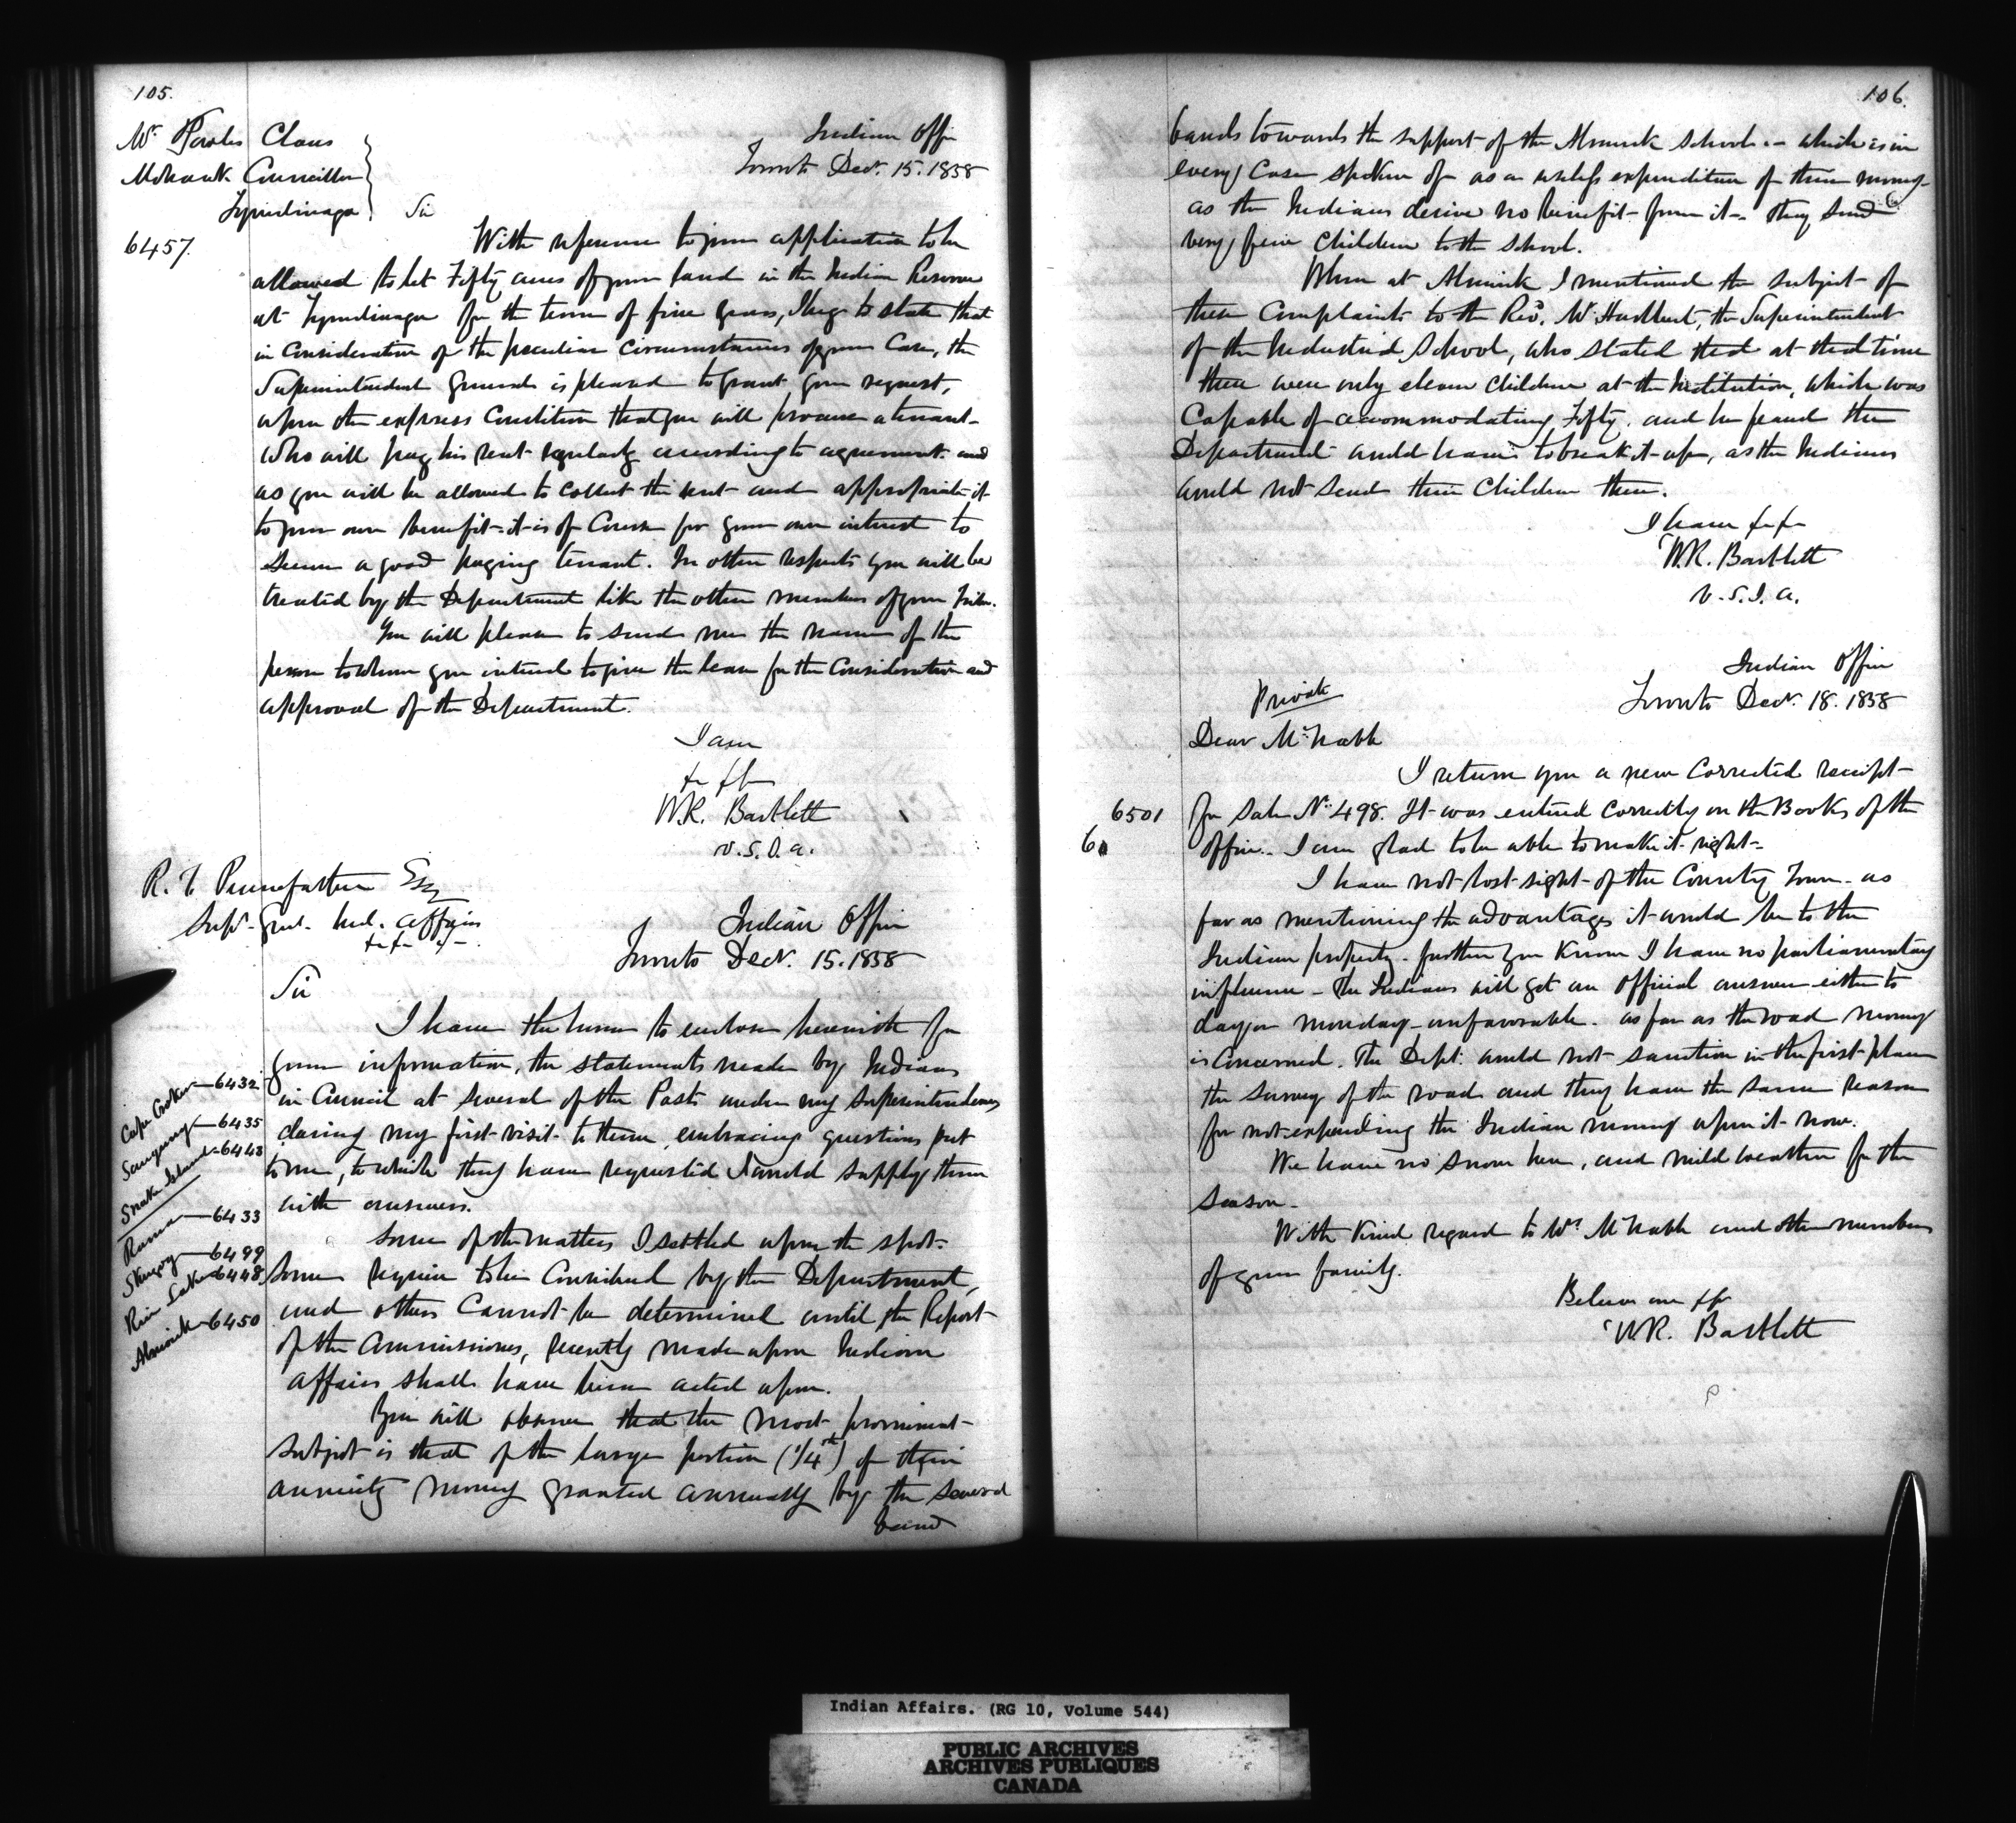 105.
Mr. Powles Claus
Mohawk Councillor
Tyendinaga
Indian Office
Toronto Decr. 15. 1858
Sir
6457.
With reference to your application to be
allowed to let Fifty acres of your land in the Indian Reserve
at Tyendinaga for the term of five years, I beg to state that
in Consideration of the peculiar circumstances of your Case, the
Superintendent General is pleased to grant your request,
upon the express Condition that you will procure a tenant
who will pay his rent regularly according to agreement. and
as you will be allowed to collect the rent and appropriate it
to your own benefit - it is of Course for your own interest to
secure a good paying tenant. In other respects you will be
treated by the Department like the other members of your tribe.
You will please to send me the name of the
person to whom you intend to give the lease for the Consideration and
approval of the Department.
I am
W.R. Bartlett
V.S.I.A.
R. T. Pennefather Esq
Supt. Genl. Ind. Affairs
Indian Office
Toronto Decr. 15. 1858
Sir
I have the honor to enclose herewith for
your information, the statements made by Indians
in Council at several of the Posts under my Superintendency
during my first visit to them, embracing questions put
to me, to which they have requested I would supply them
with answers.
Cape Croker - 6432
Saugeeng - 6435
Snake Island - 6448
Rama - 6433
Skugog - 6499
Rice Lake - 6448
Alnwick - 6450
Some of the matters I settled upon the spot.
Some require to be Considered by the Department,
and others Cannot be determined until the Report
of the Commissioners, recently made upon Indian
Affairs shall have been acted upon.
You will observe that the most prominent
subject is that of the large portion (1/4th) of their
annuity money granted annually by the several
band
106.
bands towards the support of the Alnwick School - which is in
every Case spoken of as a useless expenditure of their money
as the Indians derive no benefit from it - They send
very few Children to the School.
When at Alnwick I mentioned the subject of
these Complaints to the Revd. Mr Hurlburt, the Superintendent
of the Industrial School, who stated that at that time
there were only eleven Children at the Institution, which was
Capable of accommodating Fifty. and he feared the
Department would have to break it up, as the Indians
would not send their Children there.
I have
W.R. Bartlett
V.S.I.A.
Indian Office
Toronto Decr. 18. 1858
Private
Dear McNabb
I return you a new Corrected receipt
6501
for Sale No. 498. It was entered correctly on the Books of the
6
office. I am glad to be able to make it right -
I have not lost sight of the County Town - as
far as mentioning the advantages it would be to the
Indian property - further you Know I have no parliamentary
influence - The Indians will get an Official answer either to
day or Monday - unfavorable. as far as the road money
is Concerned. The Dept. would not sanction in the first place
the survey of the road and they have the same reason
for not expending the Indian money upon it now.
We have no snow here, and mild weather for the
season.
With Kind regard to Mrs. McNabb and other members
of your family.
Believe me
W.R. Bartlett
Indian Affairs. (RG 10, Volume 544)
PUBLIC ARCHIVES
ARCHIVES PUBLIQUES
CANADA